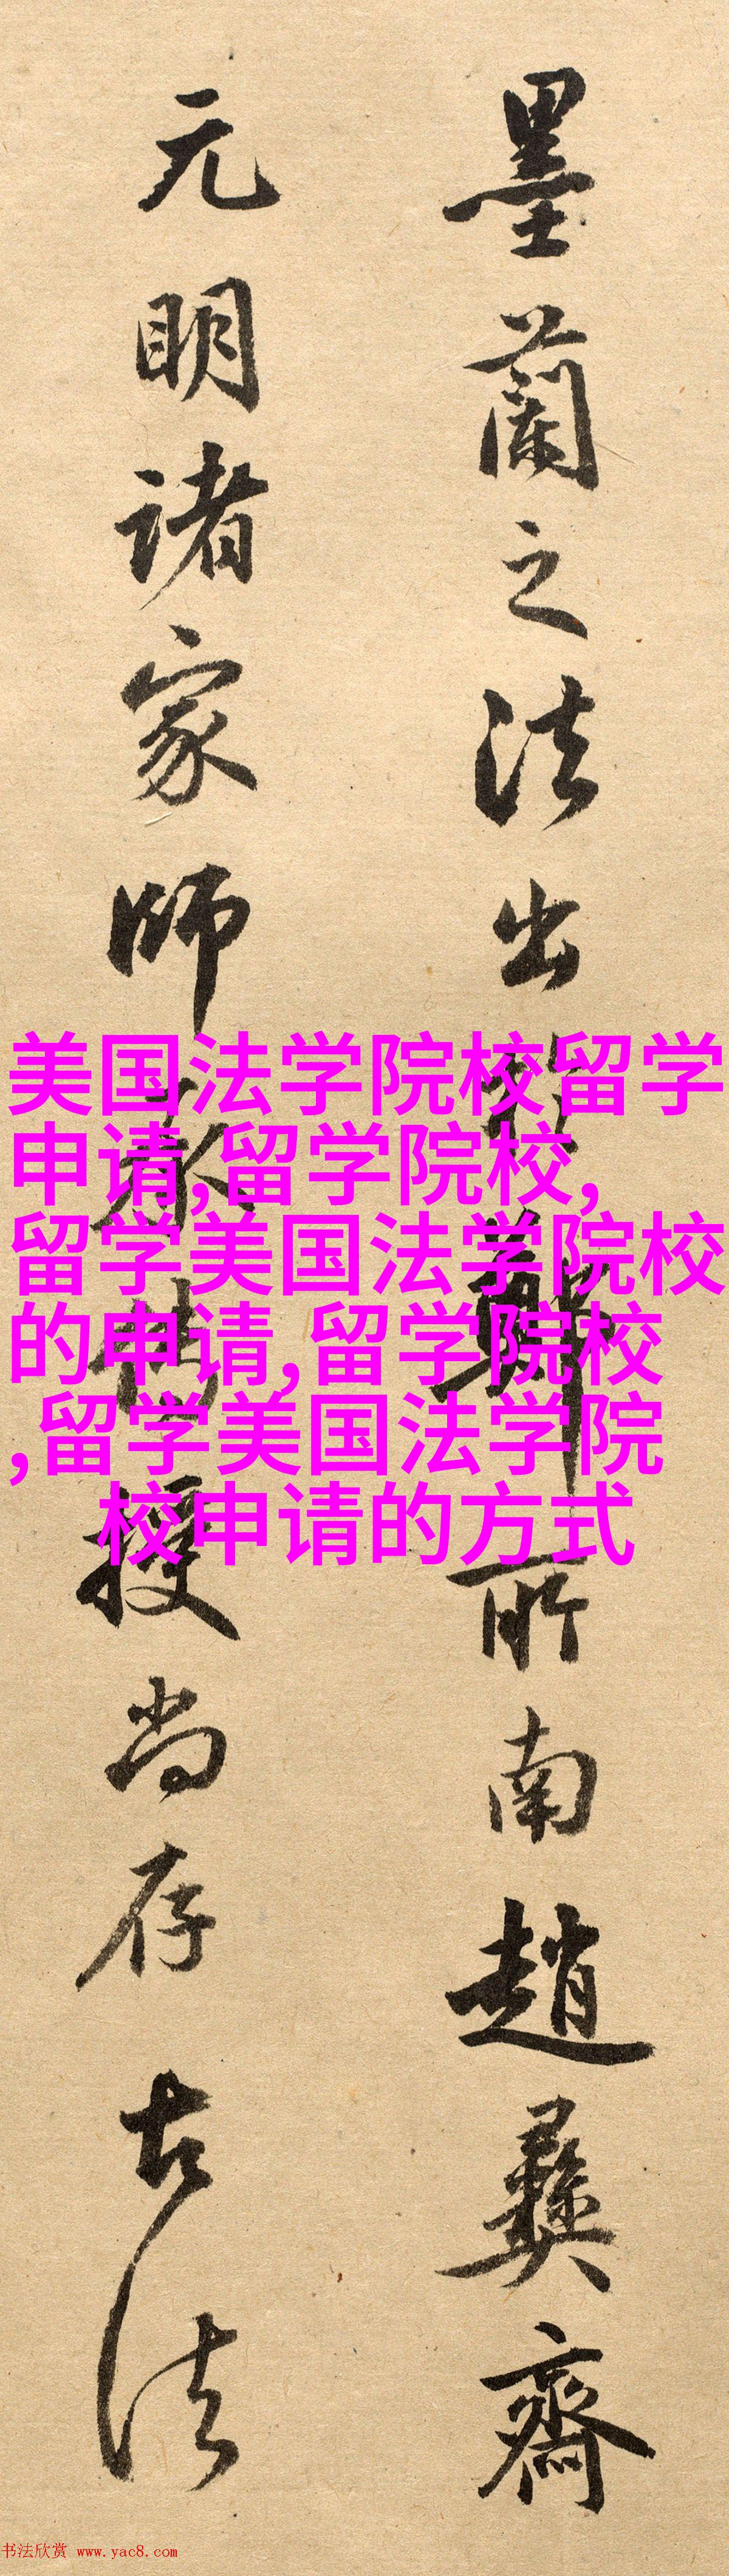 墨蘭之法出於鄭所南趙彝齋
元明諸家師承傳授尚存古法
美国法学院校留学
申请,留学院校,
留学美国法学院校
的申请,留学院校
,留学美国法学院
校申请的方式
书法欣赏 www.yac8.com